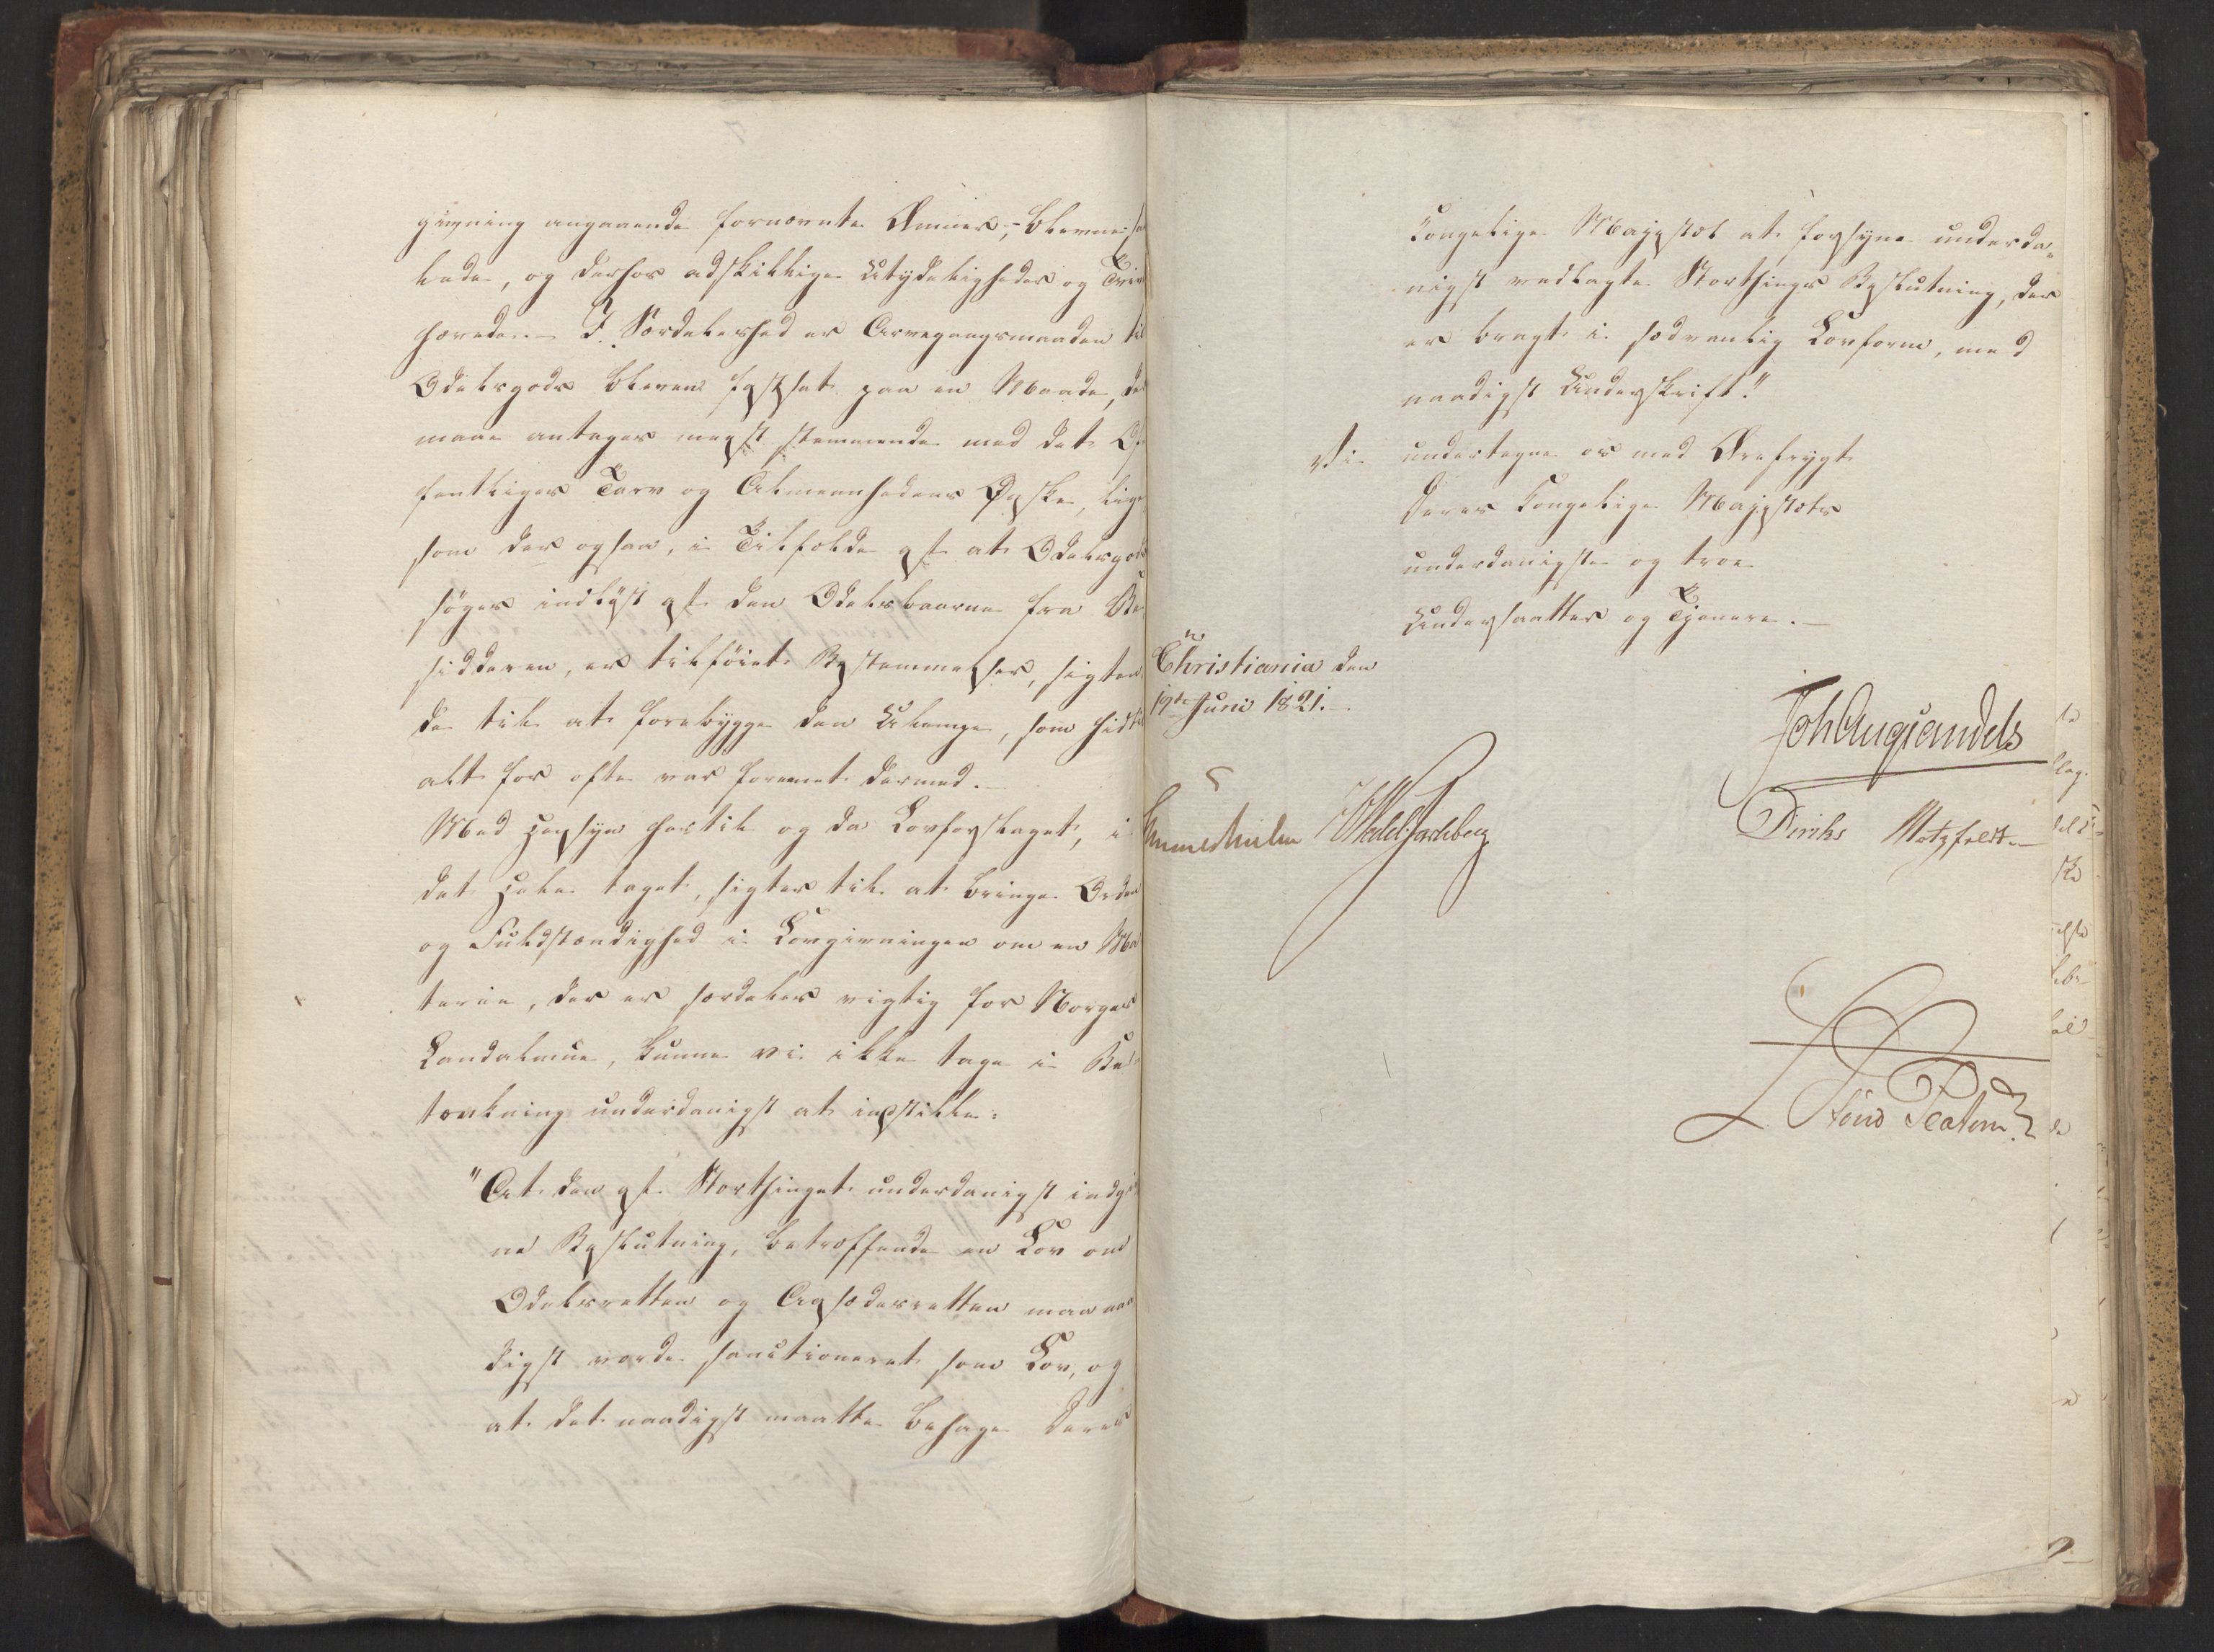 givning angaaende fornævnte Ämner, blevne sam
lede, og derhos adskillige Utydeligheder og Tvivl
hævede. – I Særdeleshed er Arvegangsmaaden til
Odelsgods bleven fastsat paa en Maade, der
maae antages meest stemmende med det Of
fentliges Tarv og Almeenhedens Ønske, lige
som der ogsaa, i Tilfælde af at Odelsgods
søges indløst af den Odelsbaarne fra Be
sidderen, er tilføiet Bestemmelser, sigten
de til at forebygge den Ulempe, som hidtil
alt for ofte var forenet dermed. –
Med Hensyn hertil og da Lovforslaget, i
det Hele taget, sigter til at bringe Orden
og Fuldstændighed i Lovgivningen om en Ma
terie, der er særdeles vigtig for Norges
Landalmue, kunne vi ikke tage i Be
tænkning underdanigst at indstille:
"At den af Storthinget underdanigst indgiv
ne Beslutning, betræffende en Lov om
Odelsretten og Aasædesretten maa naa
digst vorde sanctioneret som Lov, og
at det naadigst maatte behage Deres
Kongelige Majestæt at forsyne underda„
nigst vedlagte Storthings Beslutning, der
er bragt i sædvanlig Lovform, med
naadigst Underskrift."
Vi undertegne os med Ærefrygt
Deres Kongelige Majestæts
underdanigste og troe
Undersaatter og Tjenere. –
Christiania den
19de Juni 1821. –
Joh Aug Sandels
Sommerhielm WedelJarlsberg
Diriks Motzfeldt